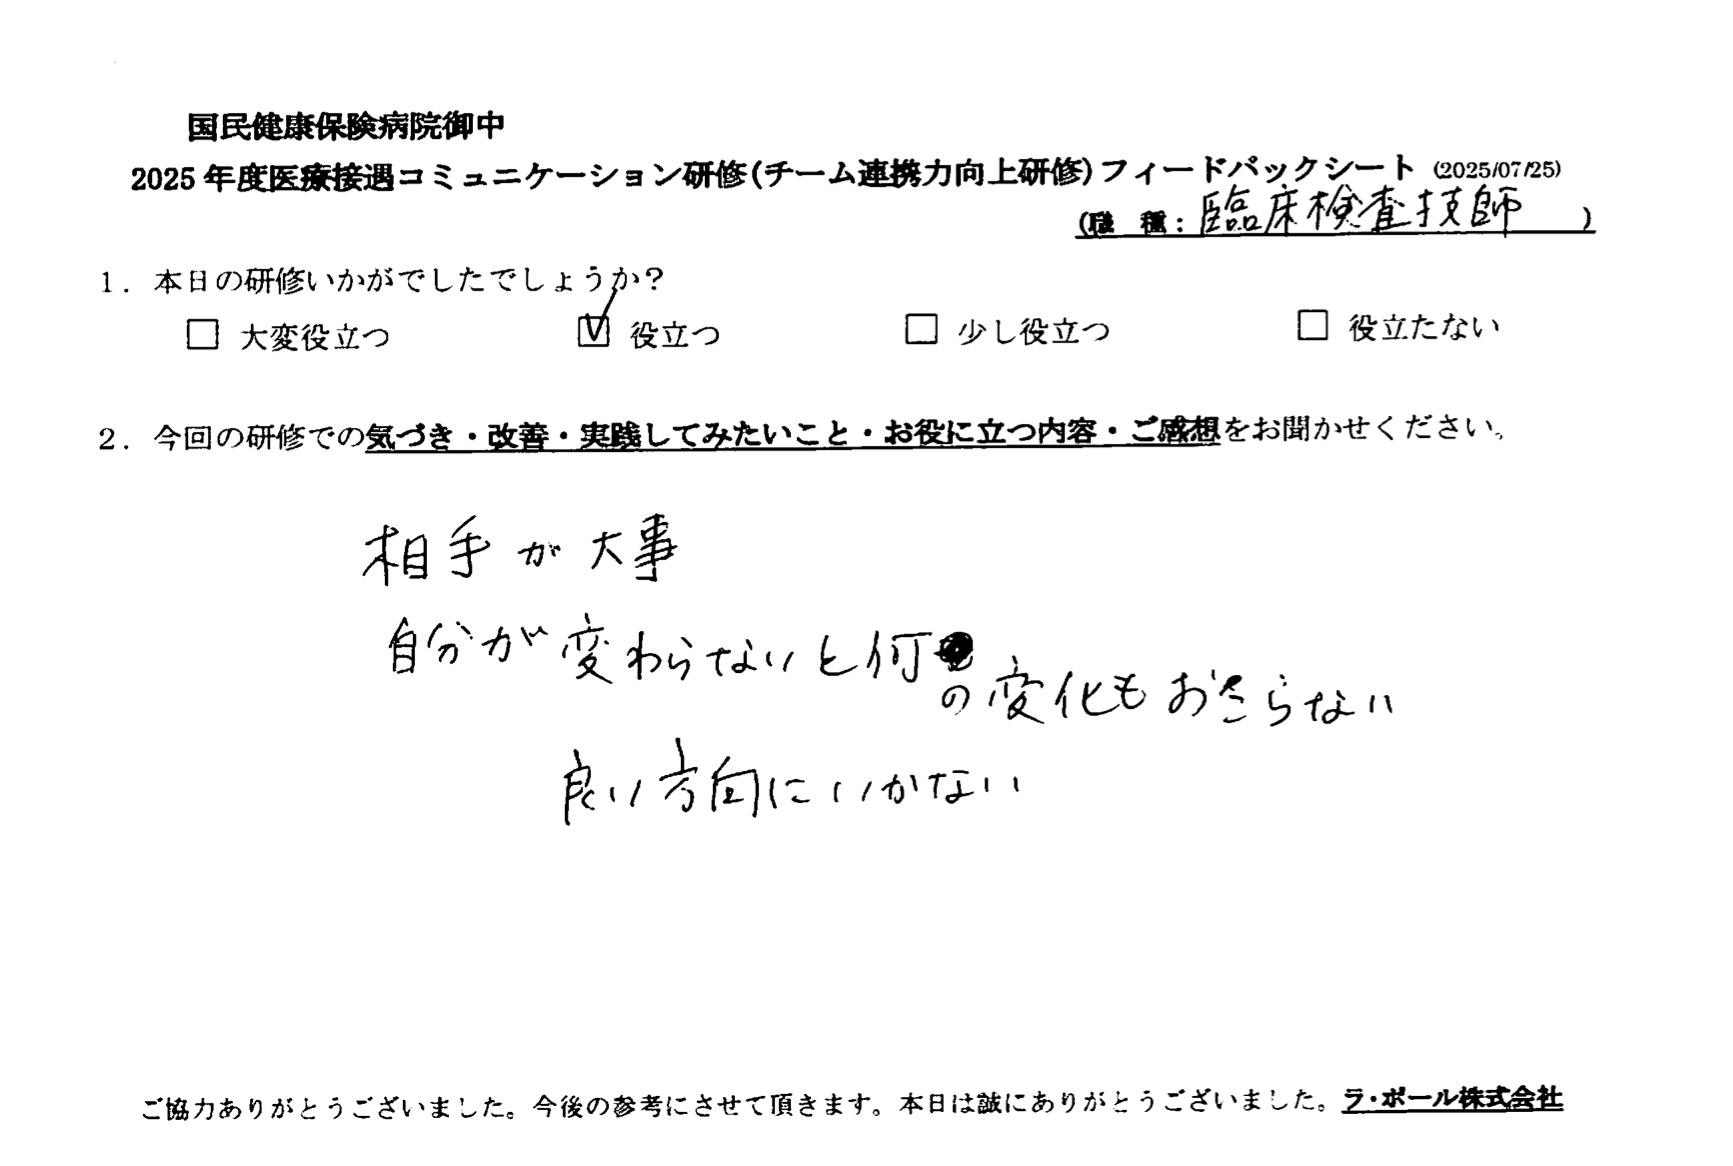 国民健康保険病院御中
2025年度医療接遇コミュニケーション研修(チーム連携力向上研修)フィードバックシート (2025/07/25)
(職　種：臨床検査技師　)
1. 本日の研修いかがでしたでしょうか?
□ 大変役立つ ☑ 役立つ □ 少し役立つ □ 役立たない
2. 今回の研修での気づき・改善・実践してみたいこと・お役に立つ内容・ご感想をお聞かせください。
相手が大事
自分が変わらないと何の変化もおこらない
良い方向にいかない
ご協力ありがとうございました。今後の参考にさせて頂きます。本日は誠にありがとうございました。ラ・ポール株式会社